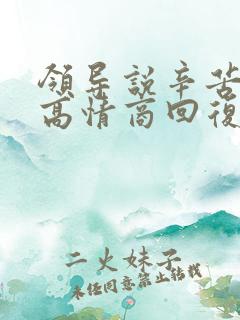 領导說辛苦
高情商回復
二火妹子
未经同意禁止转载